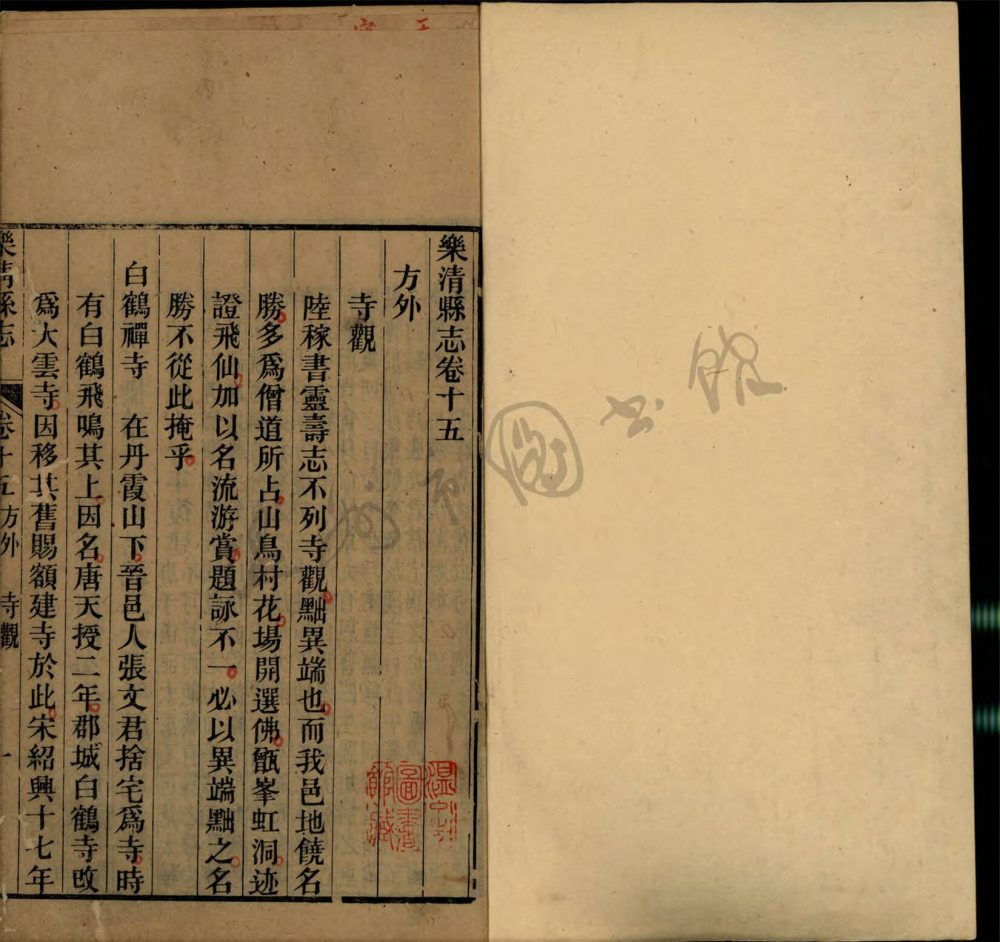 樂清縣志卷十五
方外
寺觀
陸稼書靈壽志不列寺觀黜異端也而我邑地饒名
勝多爲僧道所占山鳥村花場開選佛甑峯虹洞迹
證飛仙加以名流游賞題詠不一必以異端黜之名
勝不從此掩乎
白鶴禪寺 在丹霞山下晉邑人張文君捨宅爲寺時
有白鶴飛鳴其上因名唐天授二年郡城白鶴寺改
爲大雲寺因移其舊賜額建寺於此宋紹興十七年
樂清縣志 卷十五 方外 寺觀 一
溫州
圖書
館藏
圖書館